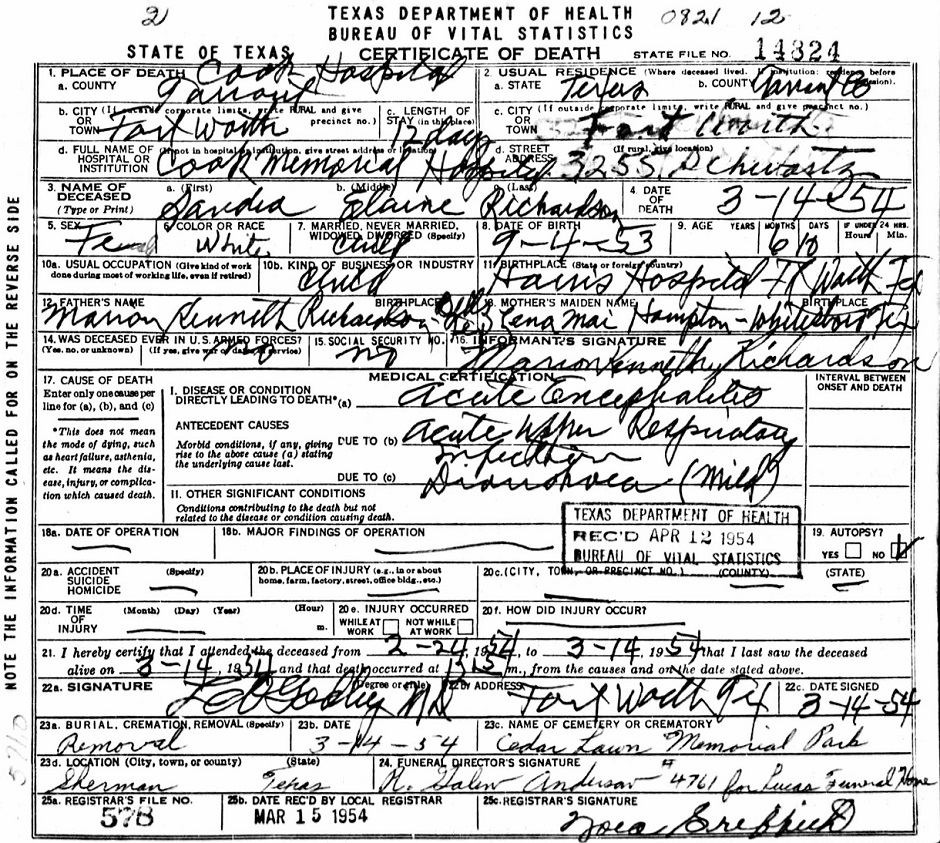 2
TEXAS DEPARTMENT OF HEALTH
0821 12
BUREAU OF VITAL STATISTICS
STATE OF TEXAS
CERTIFICATE OF DEATH
STATE FILE NO. 14824
1. PLACE OF DEATH Cook Hospital
a. COUNTY Tarrant
2. USUAL RESIDENCE (Where deceased lived. If institution: residence before admission).
a. STATE Texas b. COUNTY Tarrant
b. CITY (If outside corporate limits, write RURAL and give precinct no.) OR TOWN Fort Worth
c. LENGTH OF STAY (in this place) 12 days
c. CITY (If outside corporate limits, write RURAL and give precinct no.) OR TOWN Fort Worth
d. FULL NAME OF (If not in hospital or institution, give street address or location) HOSPITAL OR INSTITUTION Cook Memorial Hospital
d. STREET ADDRESS (If rural, give location) 3255 Schwartz
3. NAME OF DECEASED (Type or Print) a. (First) Sandra b. (Middle) Elaine c. (Last) Richardson
4. DATE OF DEATH 3-14-54
5. SEX Fe
6. COLOR OR RACE White
7. MARRIED, NEVER MARRIED, WIDOWED, DIVORCED (Specify) child
8. DATE OF BIRTH 9-4-53
9. AGE YEARS MONTHS 6 DAYS 10 IF UNDER 24 HRS. Hours Min.
10a. USUAL OCCUPATION (Give kind of work done during most of working life, even if retired)
10b. KIND OF BUSINESS OR INDUSTRY child
11. BIRTHPLACE (State or foreign country) Harris Hospital Ft Worth Tex
12. FATHER'S NAME BIRTHPLACE Marion Kenneth Richardson
13. MOTHER'S MAIDEN NAME BIRTHPLACE Lena Mai Hampton - Whitesboro Tex
14. WAS DECEASED EVER IN U.S. ARMED FORCES? (Yes, no, or unknown) (If yes, give war or dates of service) no
15. SOCIAL SECURITY NO. no
16. INFORMANT'S SIGNATURE Marion Kenneth Richardson
MEDICAL CERTIFICATION
INTERVAL BETWEEN ONSET AND DEATH
17. CAUSE OF DEATH
Enter only one cause per line for (a), (b), and (c)
*This does not mean the mode of dying, such as heart failure, asthenia, etc. It means the disease, injury, or complication which caused death.
I. DISEASE OR CONDITION DIRECTLY LEADING TO DEATH* (a) Acute Encephalitis
ANTECEDENT CAUSES
Morbid conditions, if any, giving rise to the above cause (a) stating the underlying cause last.
DUE TO (b) Acute Upper Respiratory Infection
DUE TO (c) Diarrhea (Mild)
II. OTHER SIGNIFICANT CONDITIONS
Conditions contributing to the death but not related to the disease or condition causing death.
TEXAS DEPARTMENT OF HEALTH
REC'D APR 12 1954
BUREAU OF VITAL STATISTICS
18a. DATE OF OPERATION
18b. MAJOR FINDINGS OF OPERATION
19. AUTOPSY?
YES NO
20a. ACCIDENT SUICIDE HOMICIDE (Specify)
20b. PLACE OF INJURY (e.g., in or about home, farm, factory, street, office bldg., etc.)
20c. (CITY, TOWN, OR PRECINCT NO.) (COUNTY) (STATE)
20d. TIME OF INJURY (Month) (Day) (Year) (Hour) m.
20e. INJURY OCCURRED WHILE AT WORK NOT WHILE AT WORK
20f. HOW DID INJURY OCCUR?
21. I hereby certify that I attended the deceased from 2-24, 1954, to 3-14, 1954 that I last saw the deceased
alive on 3-14, 1954 and that death occurred at 1315 m., from the causes and on the date stated above.
22a. SIGNATURE (Degree or title) MD
22b. ADDRESS Fort Worth Tx
22c. DATE SIGNED 3-14-54
23a. BURIAL, CREMATION, REMOVAL (Specify) Removal
23b. DATE 3-14-54
23c. NAME OF CEMETERY OR CREMATORY Cedar Lawn Memorial Park
23d. LOCATION (City, town, or county) (State) Sherman Texas
24. FUNERAL DIRECTOR'S SIGNATURE R. Galen Anderson #4761 for Lucas Funeral Home
25a. REGISTRAR'S FILE NO. 578
25b. DATE REC'D BY LOCAL REGISTRAR MAR 15 1954
25c. REGISTRAR'S SIGNATURE
NOTE THE INFORMATION CALLED FOR ON THE REVERSE SIDE